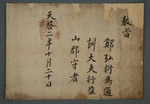 敎旨
鄭弘衍爲通
訓大夫行盈
山郡守者
天啓二年十月二十日